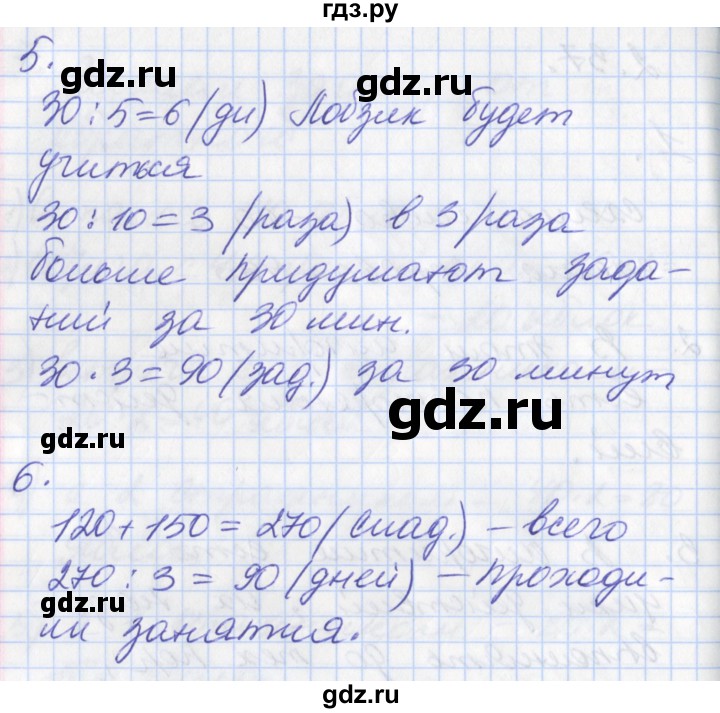 гдз.ру
5.
gdz.ru gdz.ru
30 : 5 = 6 (дн) Лобзик будет
учиться
gdz.ru gdz.ru
30 : 10 = 3 (раза) в 3 раза
больше придумают зада-
ний за 30 мин.
gdz.ru gdz.ru
30 · 3 = 90 (зад.) за 30 минут
gdz.ru
gdz.ru
6.
120 + 150 = 270 (слад.) – всего
gdz.ru
270 : 3 = 90 (дней) – проходи-
gdz.ru
ли занятия.
gdz.ru
gdz.ru